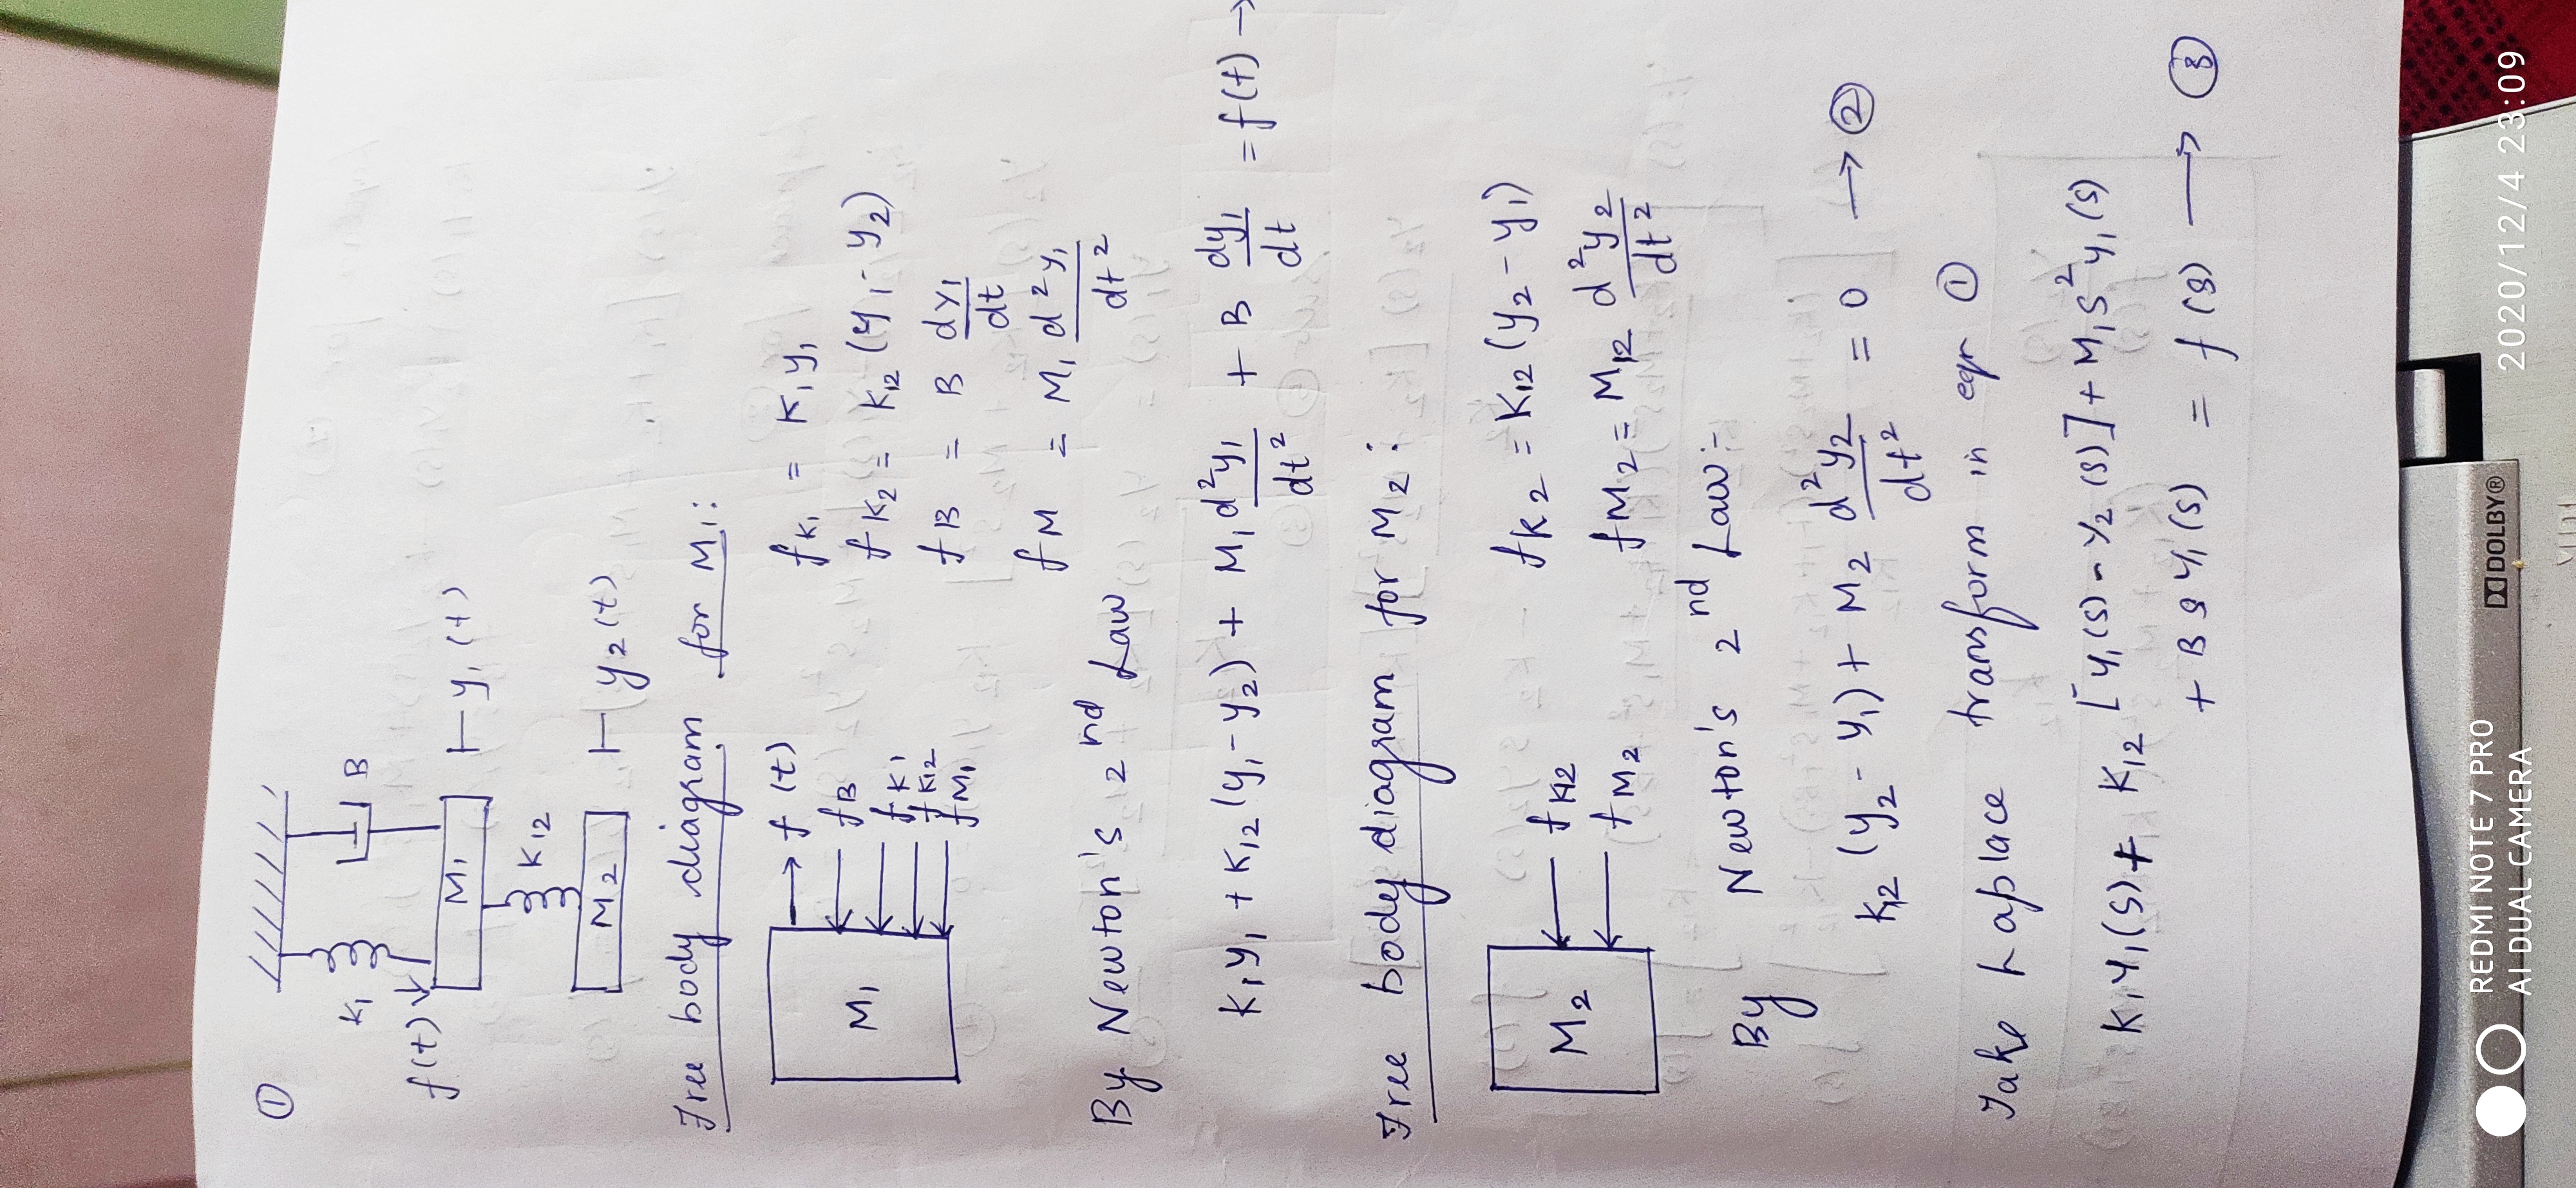 ①
K₁
B
f(t)
M₁
y₁(t)
K₁₂
M₂
y₂(t)
Free body diagram for M₁:
M₁
f(t)
fB
fK₁
fK₁₂
fM₁
fK₁ = K₁y₁
fK₂ = K₁₂(y₁-y₂)
fB = B dy₁/dt
fM = M₁ d²y₁/dt²
By Newton's 2nd Law
K₁y₁ + K₁₂(y₁-y₂) + M₁ d²y₁/dt² + B dy₁/dt = f(t) →
Free body diagram for M₂:
M₂
fK₁₂
fM₂
fK₂ = K₁₂(y₂-y₁)
fM₂ = M₁₂ d²y₂/dt²
By Newton's 2nd Law:-
K₁₂(y₂-y₁) + M₂ d²y₂/dt² = 0 → ②
Take Laplace transform in eqn ①
K₁Y₁(S) + K₁₂[Y₁(S) - Y₂(S)] + M₁S²Y₁(S)
+ BSY₁(S) = f(S) → ③
REDMI NOTE 7 PRO
AI DUAL CAMERA
DOLBY®
2020/12/4 23:09